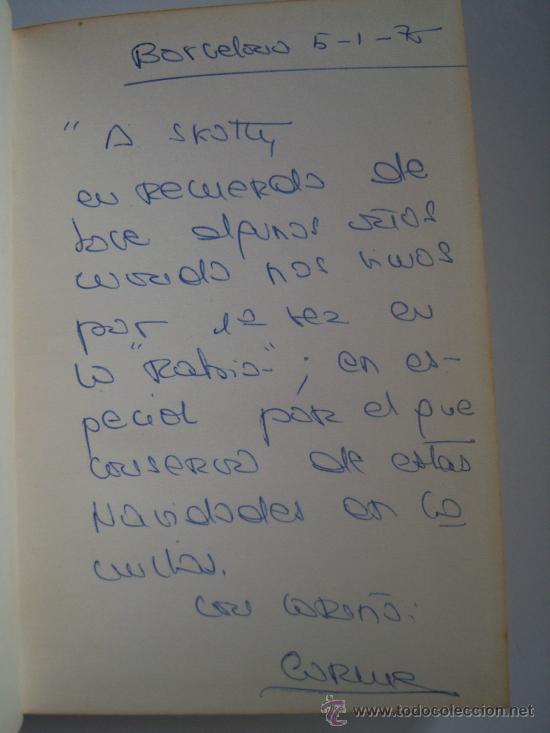 Barcelona 5-1-75
"A Skotty
en recuerdo de
hace algunos años
cuando nos vimos
por 1ª vez en
la "Rabia"; en es-
pecial por el que
conservo de estas
Navidades en
con cariño:
www.todocoleccion.net